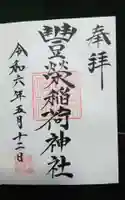 奉拝
豊榮稲荷神社
令和六年五月十二日